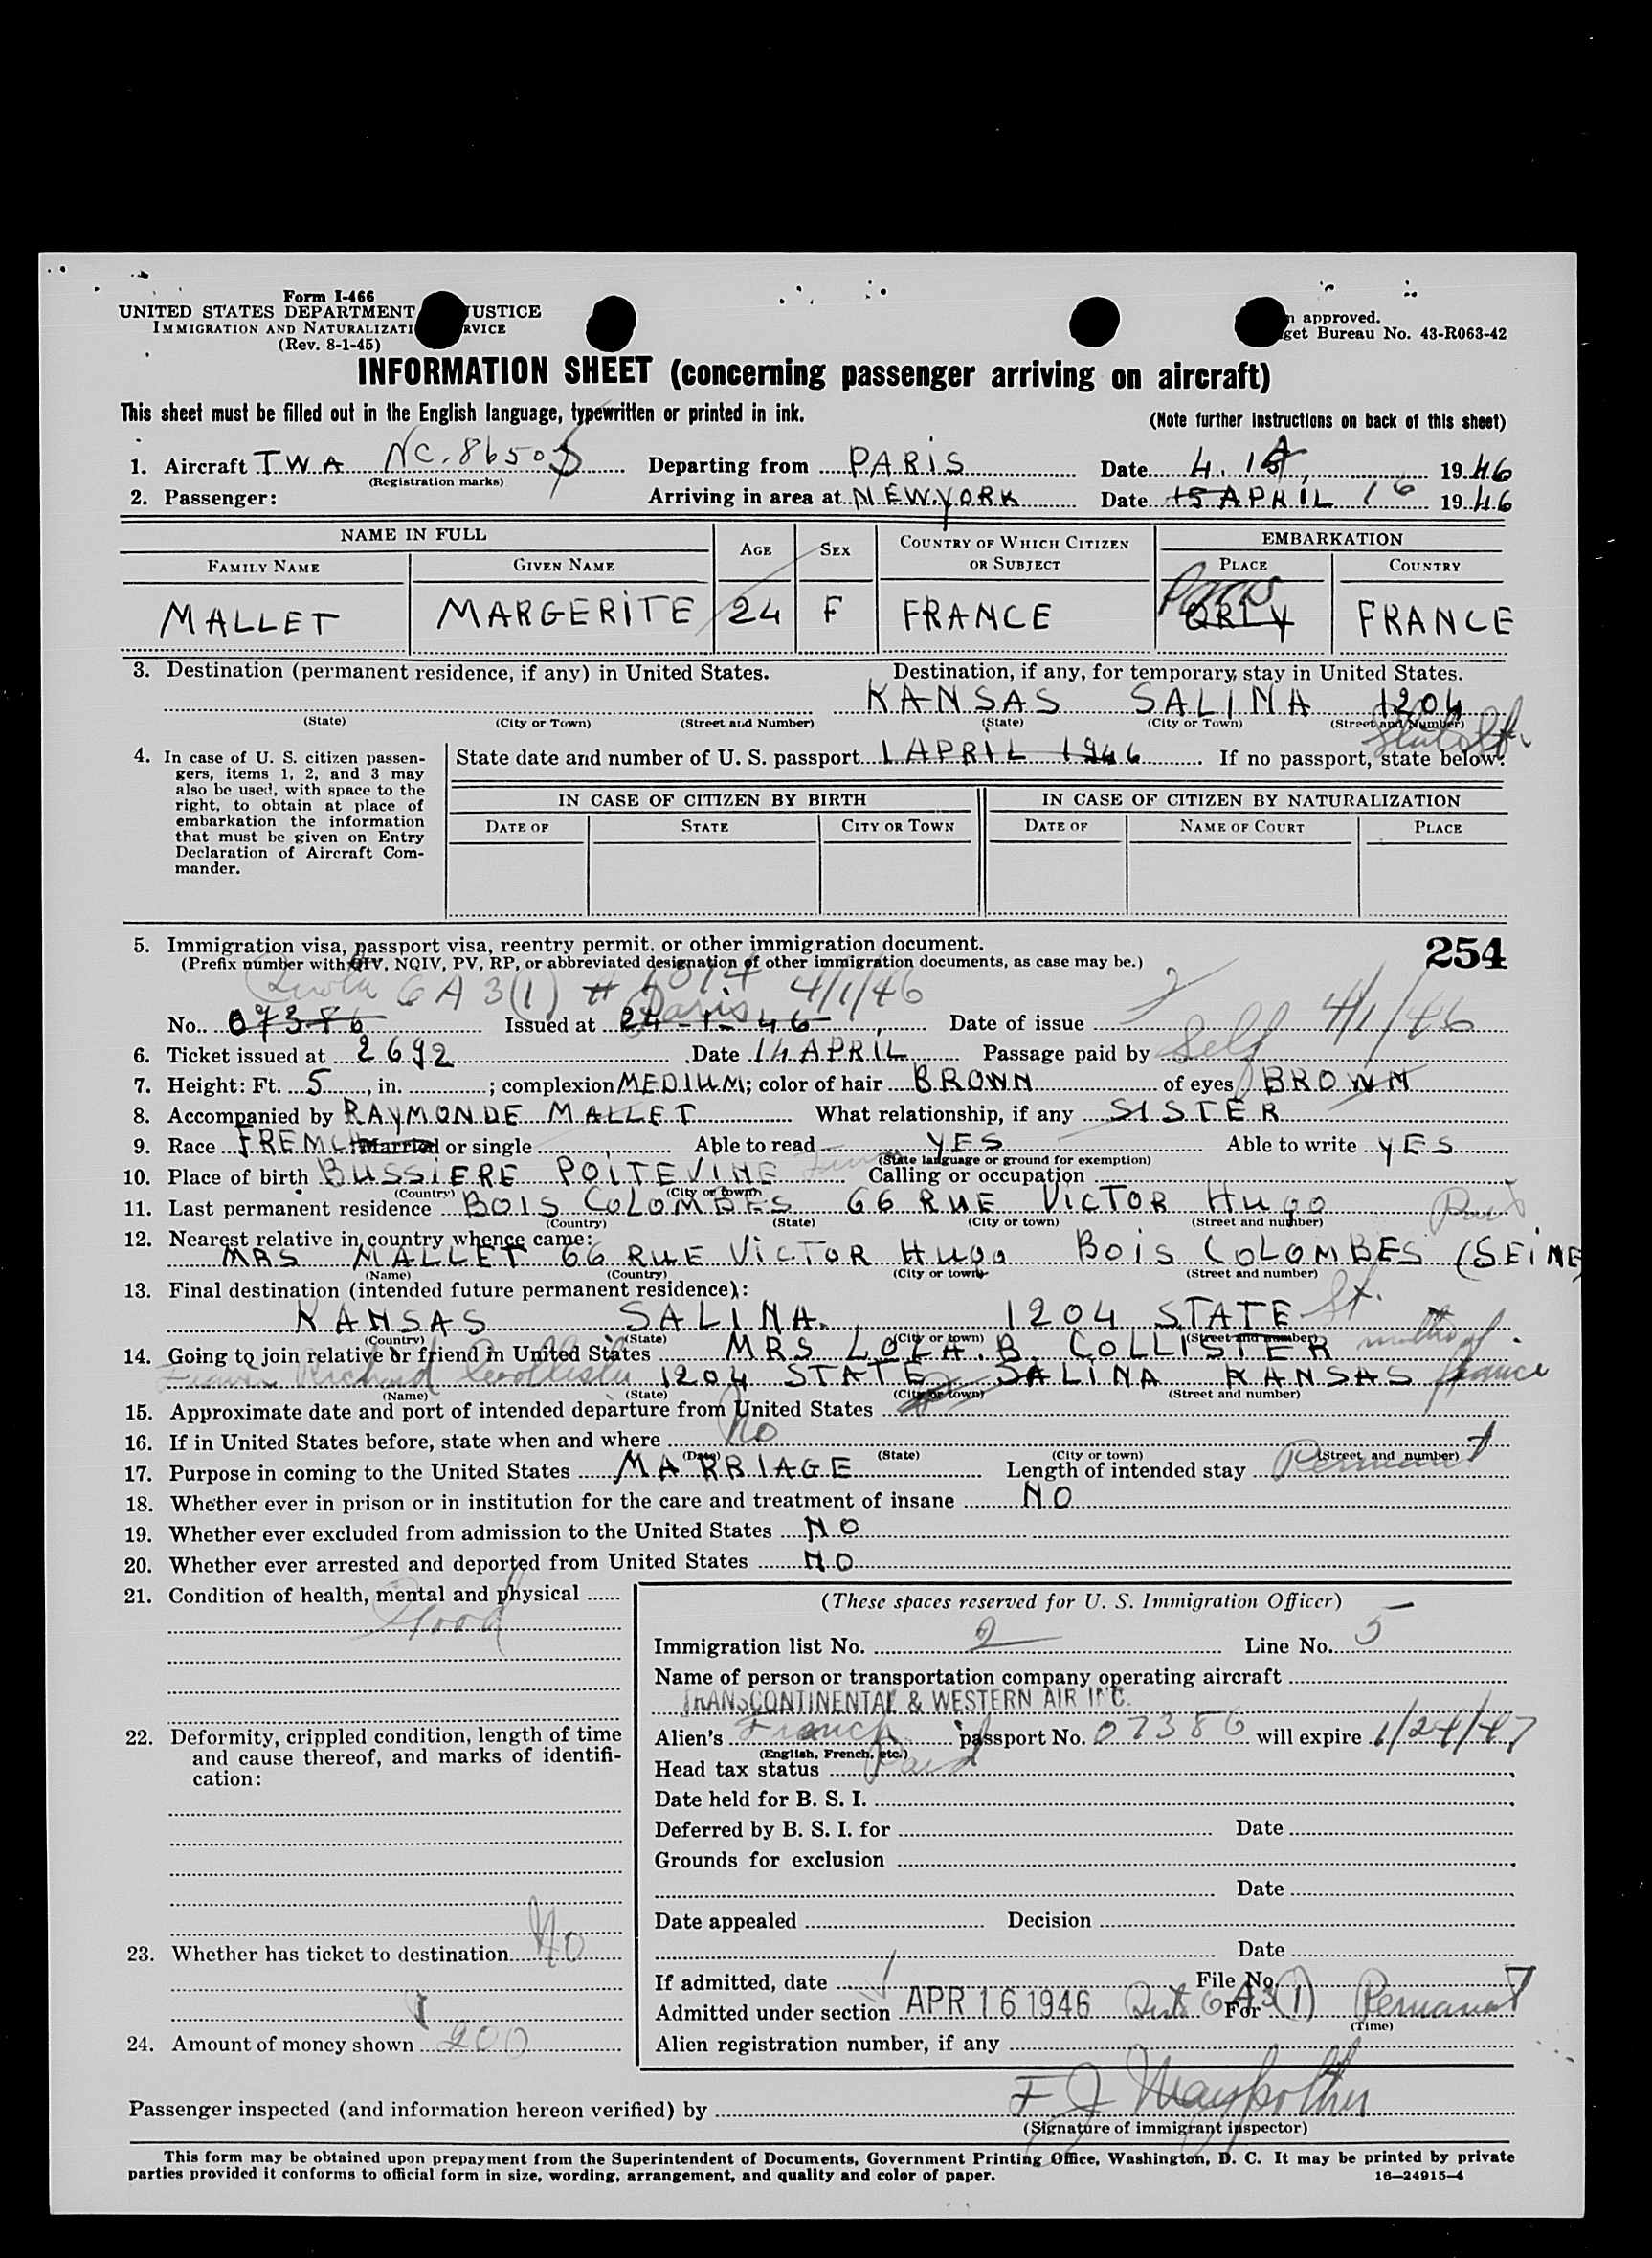 Form I-466
UNITED STATES DEPARTMENT USTICE
IMMIGRATION AND NATURALIZATI RVICE
(Rev. 8-1-45)
approved.
get Bureau No. 43-R063-42
INFORMATION SHEET (concerning passenger arriving on aircraft)
This sheet must be filled out in the English language, typewritten or printed in ink.
(Note further instructions on back of this sheet)
1. Aircraft T.W.A NC. 8650 Departing from PARIS Date 4. 1946
(Registration marks)
2. Passenger: Arriving in area at NEW.YORK Date 15 APRIL 16 1946
NAME IN FULL AGE SEX COUNTRY OF WHICH CITIZEN OR SUBJECT EMBARKATION
FAMILY NAME GIVEN NAME PLACE COUNTRY
Paris
MALLET MARGERITE 24 F FRANCE ORLY FRANCE
3. Destination (permanent residence, if any) in United States. Destination, if any, for temporary stay in United States.
KANSAS SALINA 1204
(State) (City or Town) (Street and Number) (State) (City or Town) (Street and Number)
State St.
4. In case of U. S. citizen passengers, items 1, 2, and 3 may also be used, with space to the right, to obtain at place of embarkation the information that must be given on Entry Declaration of Aircraft Commander.
State date and number of U. S. passport 1 APRIL 1946 If no passport, state below:
IN CASE OF CITIZEN BY BIRTH IN CASE OF CITIZEN BY NATURALIZATION
DATE OF STATE CITY OR TOWN DATE OF NAME OF COURT PLACE
5. Immigration visa, passport visa, reentry permit, or other immigration document. 254
(Prefix number with QIV, NQIV, PV, RP, or abbreviated designation of other immigration documents, as case may be.)
Quota 6 A 3(1) # 4/1/46
Paris
No. 07386 Issued at 24-1-46 Date of issue 4/1/46
6. Ticket issued at 2692 Date 14 APRIL Passage paid by Self
7. Height: Ft. 5, in. ; complexion MEDIUM; color of hair BROWN of eyes BROWN
8. Accompanied by RAYMONDE MALLET What relationship, if any SISTER
9. Race FRENCH Married or single Able to read YES Able to write YES
(State language or ground for exemption)
10. Place of birth BUSSIERE POITEVINE Calling or occupation
(Country) (City or town)
11. Last permanent residence BOIS COLOMBES 66 RUE VICTOR HUGO
(Country) (State) (City or town) (Street and number)
12. Nearest relative in country whence came:
MRS MALLET 66 RUE VICTOR HUGO BOIS COLOMBES (SEINE
(Name) (Country) (City or town) (Street and number)
13. Final destination (intended future permanent residence):
KANSAS SALINA. 1204 STATE St.
(Country) (State) (City or town) (Street and number)
14. Going to join relative or friend in United States MRS LOLA.B. COLLISTER mother of
Richard Collister 1204 STATE SALINA KANSAS fiance
(Name) (State) (City or town) (Street and number)
15. Approximate date and port of intended departure from United States
16. If in United States before, state when and where No
(Date) (State) (City or town) (Street and number)
17. Purpose in coming to the United States MARRIAGE Length of intended stay Permanent
18. Whether ever in prison or in institution for the care and treatment of insane NO
19. Whether ever excluded from admission to the United States NO
20. Whether ever arrested and deported from United States NO
21. Condition of health, mental and physical
Good
22. Deformity, crippled condition, length of time and cause thereof, and marks of identification:
23. Whether has ticket to destination No
24. Amount of money shown 200
(These spaces reserved for U. S. Immigration Officer)
Immigration list No. 2 Line No. 5
Name of person or transportation company operating aircraft
TRANSCONTINENTAL & WESTERN AIR INC.
Alien's French passport No. 07386 will expire 1/24/47
(English, French, etc.)
Head tax status Paid
Date held for B. S. I.
Deferred by B. S. I. for Date
Grounds for exclusion
Date
Date appealed Decision
Date
If admitted, date File No.
Admitted under section APR 16 1946 6 A3(1) For Permanent
(Time)
Alien registration number, if any
Passenger inspected (and information hereon verified) by F J
(Signature of immigrant inspector)
This form may be obtained upon prepayment from the Superintendent of Documents, Government Printing Office, Washington, D. C. It may be printed by private
parties provided it conforms to official form in size, wording, arrangement, and quality and color of paper. 16—24915-4